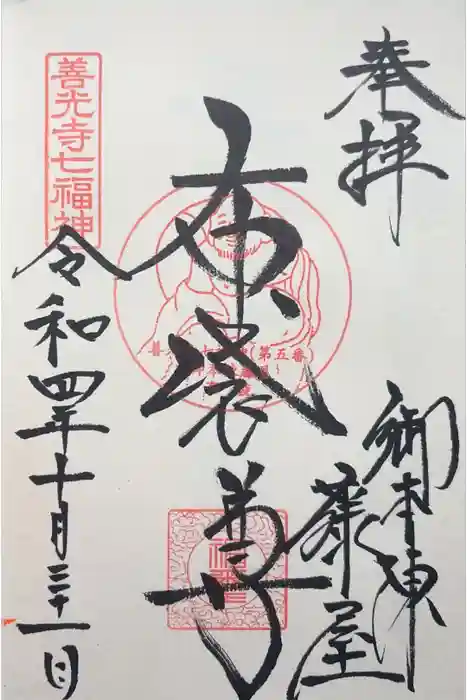 奉拝
布袋尊
御本陳
藤屋
善光寺七福神
令和四年十月三十一日
第五番